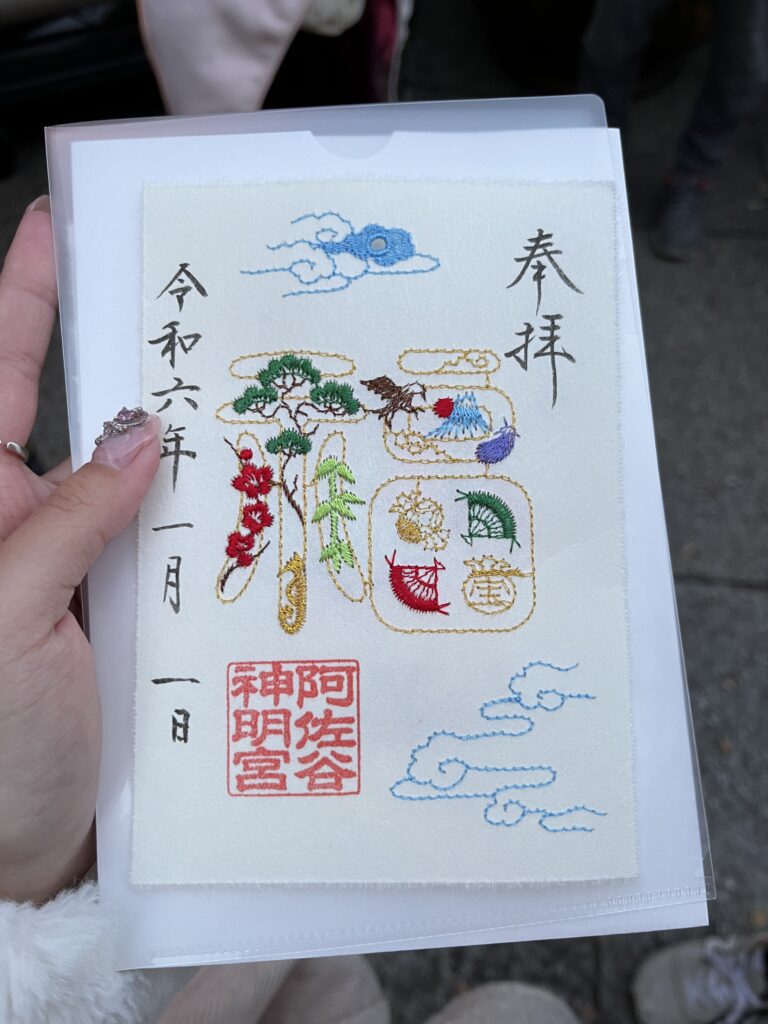 奉拝
福
令和六年一月一日
阿佐谷
神明宮